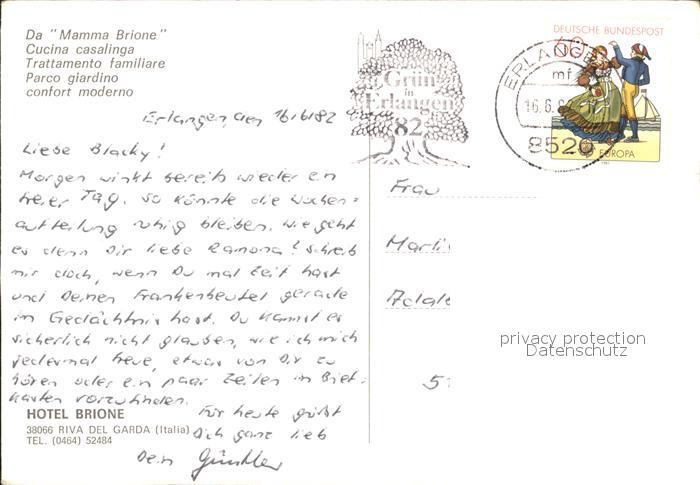 Da "Mamma Brione"
Cucina casalinga
Trattamento familiare
Parco giardino
confort moderno
Erlangen den 16/6/82
Liebe Blacky!
Morgen winkt bereits wieder ein
freier Tag. so könnte die Wochen=
aufteilung ruhig bleiben. wie geht
es denn Dir liebe Ramona? Schreib
mir doch, wenn Du mal Zeit hast
und Deinen Frankenbeutel gerade
im Gedächtnis hast. Du kannst es
sicherlich nicht glauben, wie ich mich
jedesmal freue, etwas von Dir zu
hören oder ein paar Zeilen im Brief=
kasten vorzufinden.
Für heute grüßt
Dich ganz lieb
Dein Günther
HOTEL BRIONE
38066 RIVA DEL GARDA (Italia)
TEL. (0464) 52484
Grün
in
Erlangen
82
ERLANGEN
mf
16.6.82
8520
DEUTSCHE BUNDESPOST
60
EUROPA
Frau
privacy protection
Datenschutz